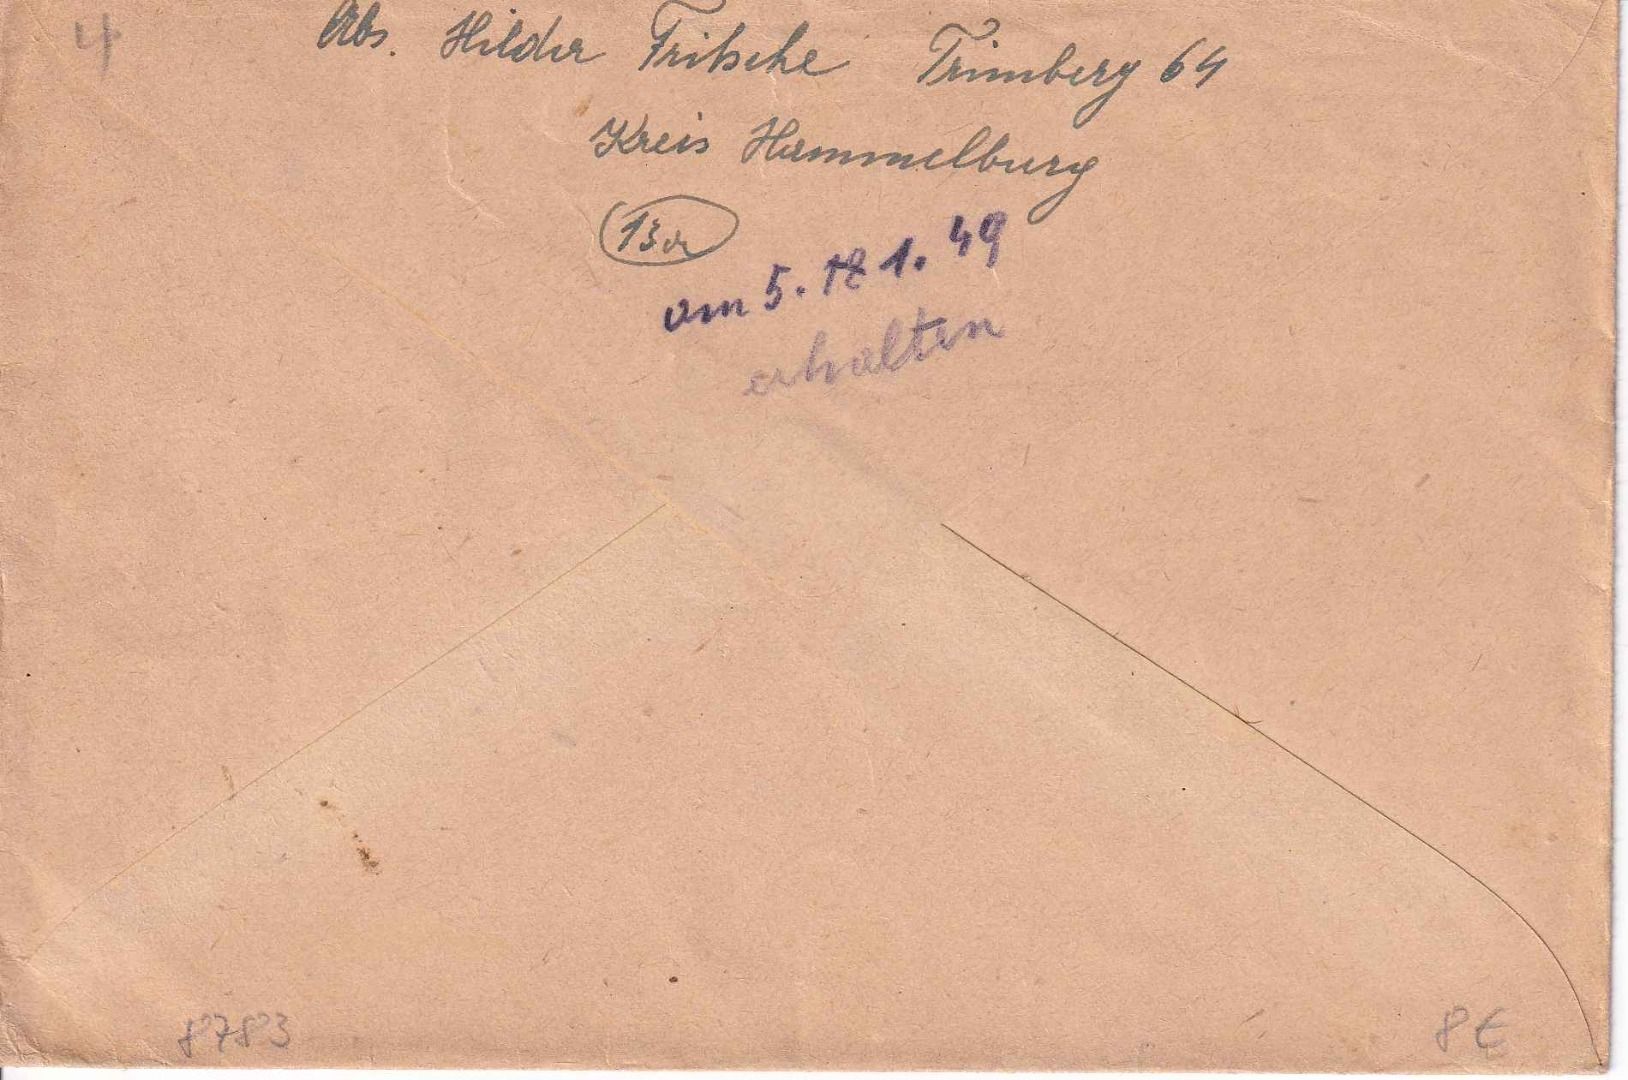 4
Abs. Hilda Fritsche Trimberg 64
Kreis Hammelburg
13a
am 5. 1. 49
erhalten
8783
8 €